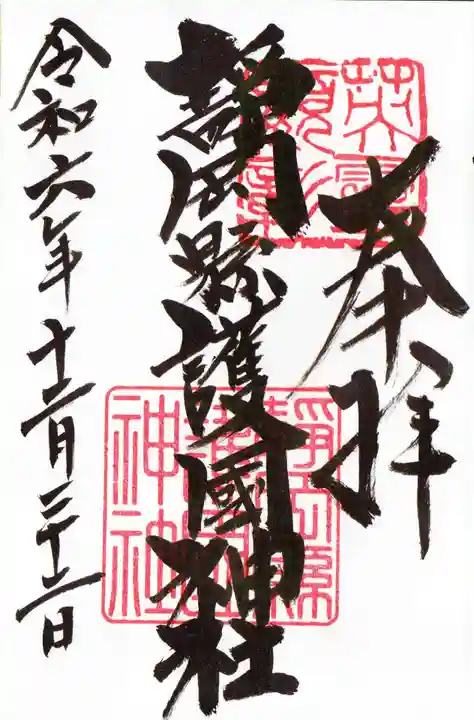 奉拝
靜岡縣護國神社
令和六年十二月二十二日
靜岡縣
護國
神社